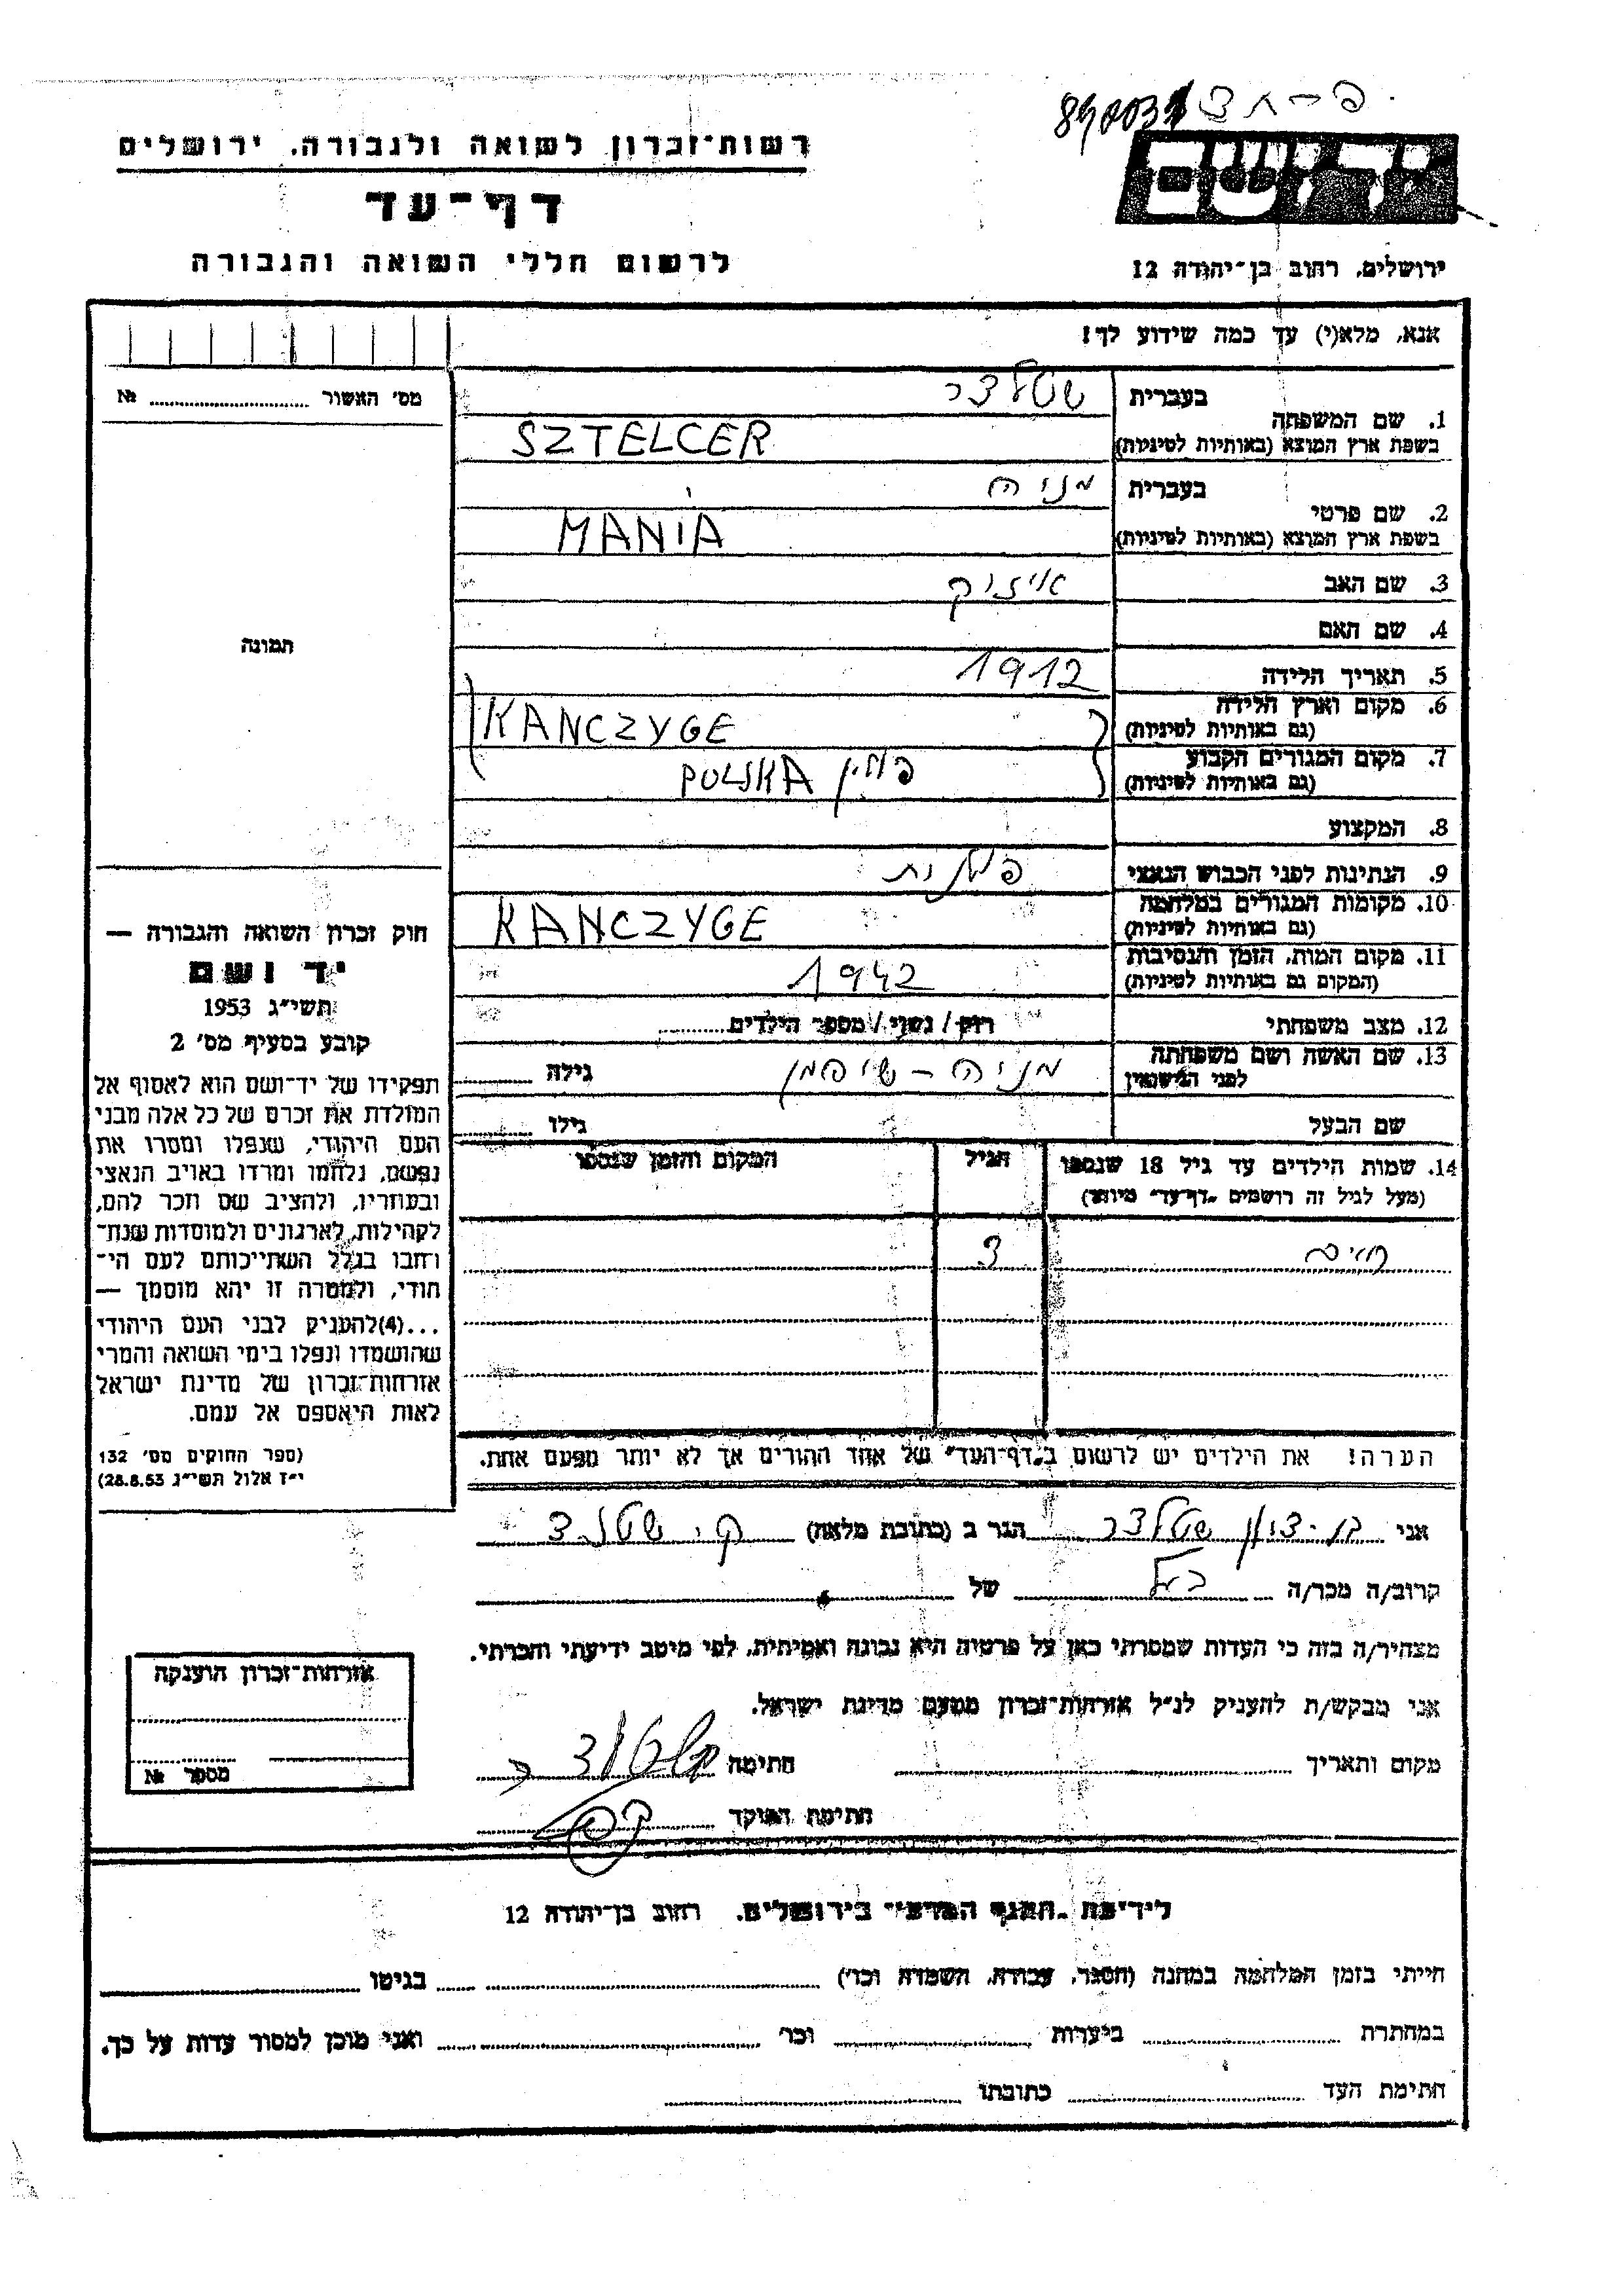 רשות־זכרון לשואה ולגבורה, ירושלים
דף־עד
לרשום חללי השואה והגבורה
יד ושם
ירושלים, רחוב בן־יהודה 12
אנא, מלא(י) עד כמה שידוע לך!
מס׳ האשור № 
1. שם המשפחה
בעברית שטלצר
בשפת ארץ המוצא (באותיות לטיניות) SZTELCER
2. שם פרטי
בעברית מניה
בשפת ארץ המוצא (באותיות לטיניות) MANIA
3. שם האב איזיק
4. שם האם
5. תאריך הלידה 1912
6. מקום וארץ הלידה
(גם באותיות לטיניות) KANCZYGE
7. מקום המגורים הקבוע
(גם באותיות לטיניות) פולין POLSKA
8. המקצוע
9. הנתינות לפני הכבוש הנאצי פולנית
10. מקומות המגורים במלחמה
(גם באותיות לטיניות) KANCZYGE
11. מקום המות, הזמן והנסיבות
(המקום גם באותיות לטיניות) 1942
12. מצב משפחתי רווק / נשוי / מספר הילדים
13. שם האשה ושם משפחתה
לפני הנישואין מניה – שיפמן גילה
שם הבעל גילו
14. שמות הילדים עד גיל 18 שנספו
(מעל לגיל זה רושמים „דף־עד״ מיוחד)
הגיל
המקום והזמן שנספו
חיים 3
הערה! את הילדים יש לרשום ב„דף־העד״ של אחד ההורים אך לא יותר מפעם אחת.
תמונה
חוק זכרון השואה והגבורה —
יד ושם
תשי״ג 1953
קובע בסעיף מס׳ 2
תפקידו של יד־ושם הוא לאסוף אל
המולדת את זכרם של כל אלה מבני
העם היהודי, שנפלו ומסרו את
נפשם, נלחמו ומרדו באויב הנאצי
ובעוזריו, ולהציב שם וזכר להם,
לקהילות, לארגונים ולמוסדות שנח־
רבו בגלל השתייכותם לעם הי־
הודי, ולמטרה זו יהא מוסמך —
...(4)להעניק לבני העם היהודי
שהושמדו ונפלו בימי השואה והמרי
אזרחות־זכרון של מדינת ישראל
לאות היאספם אל עמם.
(ספר החוקים מס׳ 132
י״ז אלול תשי״ג 28.8.53)
אני בן-ציון שטלצר הגר ב (כתובת מלאה)
קרוב/ה מכר/ה בעל של
מצהיר/ה בזה כי העדות שמסרתי כאן על פרטיה היא נכונה ואמיתית, לפי מיטב ידיעתי והכרתי.
אני מבקש/ת להעניק לנ״ל אזרחות־זכרון מטעם מדינת ישראל.
מקום ותאריך חתימה
חתימת הפוקד
אזרחות־זכרון הוענקה
מספר №
לידיעת „הגנזך המדעי״ בירושלים, רחוב בן־יהודה 12
הייתי בזמן המלחמה במחנה (הסגר, עבודה, השמדה וכו׳) בגיטו
במחתרת ביערות וכו׳ ואני מוכן למסור עדות על כך.
חתימת העד כתובתו